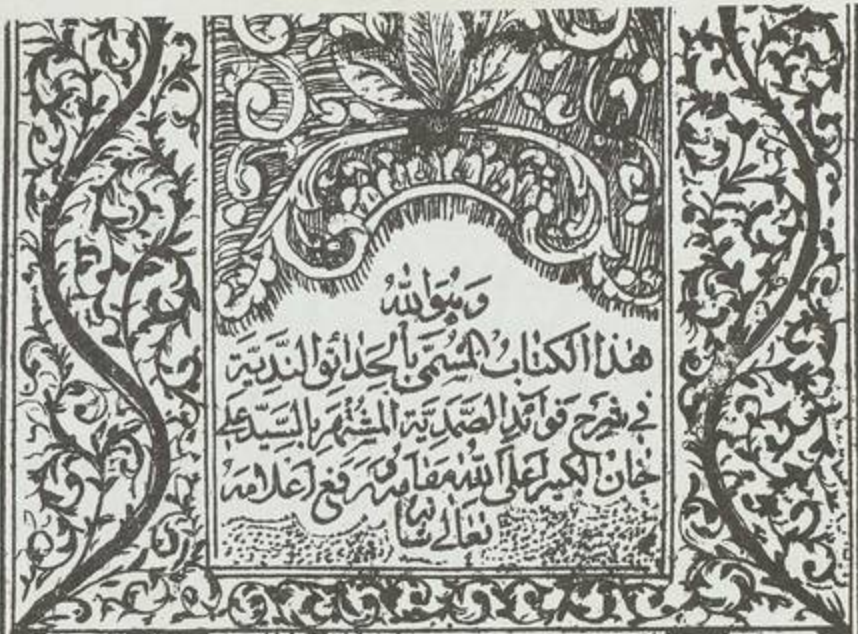 وَهُوَ اللهُ
هٰذا الكتابُ المُسَمّى بالحدائق النَّدِيَّة
في شرح فوائدِ الصَّمَدِيَّة المشتهر بالسَيّد علی
خان الكبير اعلى اللهُ مقامه و رفع اعلامه
تعالى